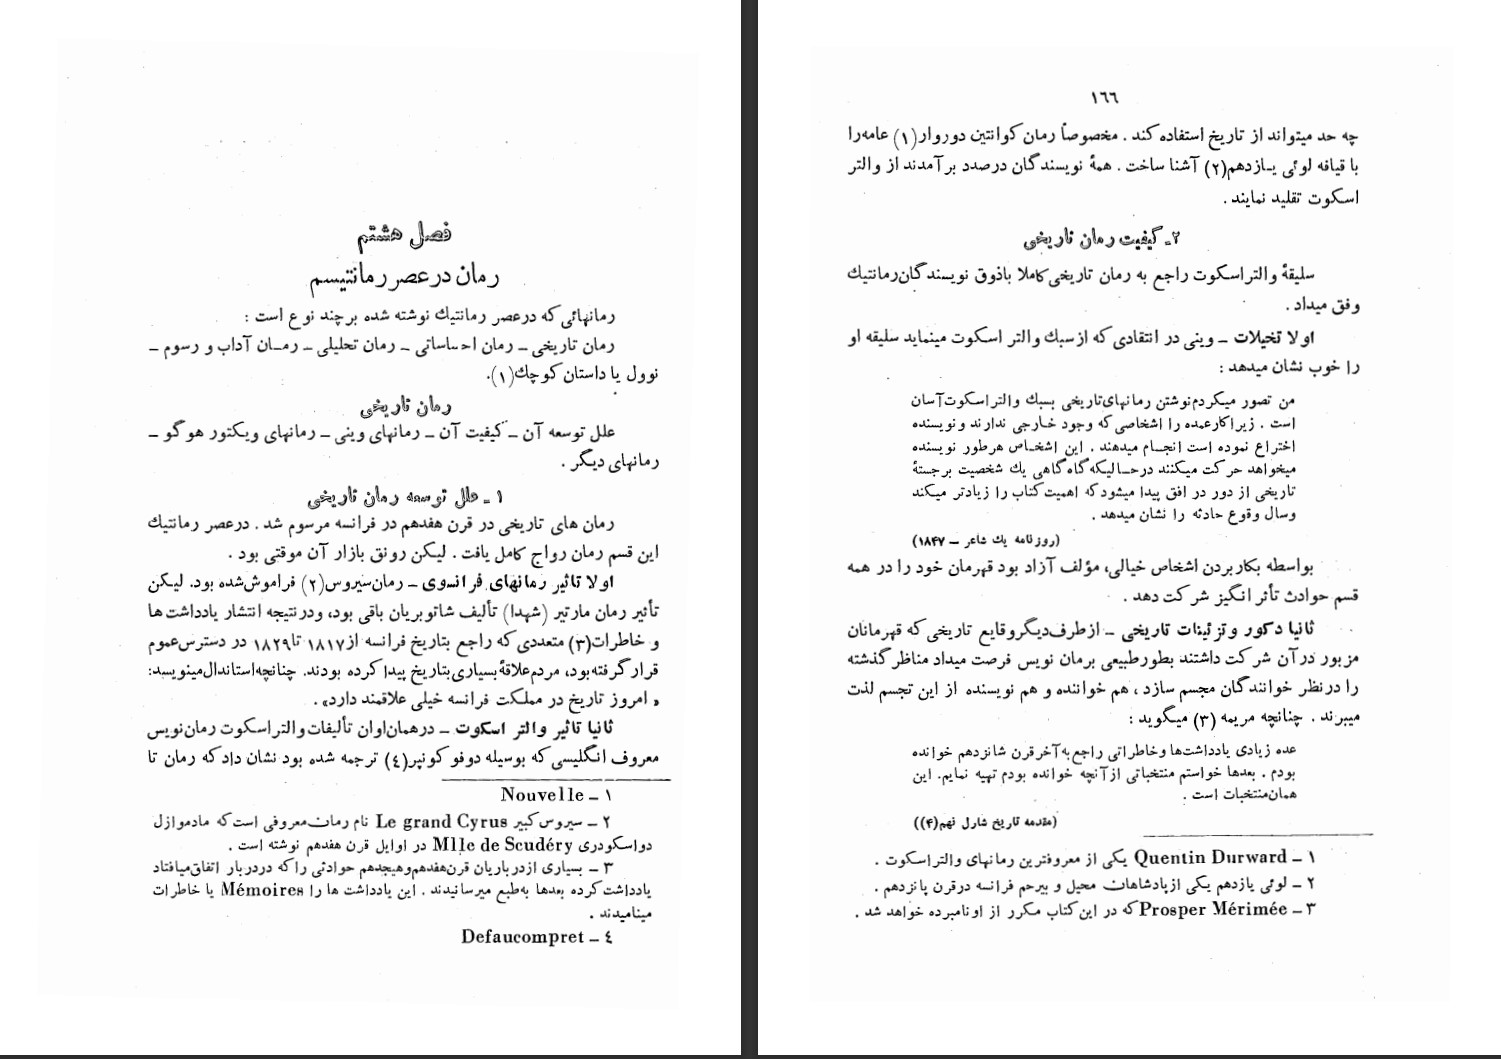 فصل هشتم
رمان در عصر رمانتیسم
رمانهائی که در عصر رمانتیك نوشته شده بر چند نوع است :
رمان تاریخی ـ رمان احساساتی ـ رمان تحلیلی ـ رمـان آداب و رسوم ـ
نوول یا داستان کوچك(۱).
رمان تاریخی
علل توسعه آن ـ کیفیت آن ـ رمانهای وینی ـ رمانهای ویکتور هوگو ـ
رمانهای دیگر .
۱ ـ علل توسعه رمان تاریخی
رمان های تاریخی در قرن هفدهم در فرانسه مرسوم شد . در عصر رمانتیك
این قسم رمان رواج کامل یافت . لیکن رونق بازار آن موقتی بود .
اولا تاثیر رمانهای فرانسوی ـ رمان سیروس(۲) فراموش شده بود. لیکن
تأثیر رمان مارتیر (شهدا) تألیف شاتوبریان باقی بود، ودرنتیجه انتشار یادداشت ها
و خاطرات(۳) متعددی که راجع بتاریخ فرانسه از ۱۸۱۷ تا ۱۸۲۹ در دسترس عموم
قرار گرفته بود، مردم علاقهٔ بسیاری بتاریخ پیدا کرده بودند. چنانچه استاندال مینویسد:
« امروز تاریخ در مملکت فرانسه خیلی علاقمند دارد» .
ثانیا تاثیر والتر اسکوت ـ در همان اوان تألیفات والتر اسکوت رمان نویس
معروف انگلیسی که بوسیله دوفو کونپر(٤) ترجمه شده بود نشان داد که رمان تا
۱ ـ Nouvelle
۲ ـ سیروس کبیر Le grand Cyrus نام رمان معروفی است که مادموازل
دواسکودری Mlle de Scudéry در اوایل قرن هفدهم نوشته است .
۳ ـ بسیاری از درباریان قرن هفدهم و هیجدهم حوادثی را که در دربار اتفاق میافتاد
یادداشت کرده بعدها به طبع میرسانیدند . این یادداشت ها را Mémoires یا خاطرات
مینامیدند .
٤ ـ Defaucompret
۱٦٦
چه حد میتواند از تاریخ استفاده کند . مخصوصاً رمان کوانتین دوروار(۱) عامه را
با قیافه لوئی یـازدهم(۲) آشنا ساخت . همهٔ نویسندگان درصدد برآمدند از والتر
اسکوت تقلید نمایند .
۲ـ کیفیت رمان تاریخی
سلیقهٔ والتر اسکوت راجع به رمان تاریخی کاملا با ذوق نویسندگان رمانتیك
وفق میداد .
اولا تخیلات ـ وینی در انتقادی که از سبك والتر اسکوت مینماید سلیقه او
را خوب نشان میدهد :
من تصور میکردم نوشتن رمانهای تاریخی بسبك والتر اسکوت آسان
است . زیرا کار عمده را اشخاصی که وجود خـارجی ندارند و نویسنده
اختراع نموده است انجـام میدهند . این اشخـاص هرطور نویسنده
میخواهد حرکت میکنند درحـالیکه گاه گاهی یك شخصیت برجستهٔ
تاریخی از دور در افق پیدا میشود که اهمیت کتاب را زیادتر میکند
وسال وقوع حادثه را نشان میدهد .
(روزنامه یك شاعر ـ ۱۸۴۷)
بواسطه بکار بردن اشخاص خیالی، مؤلف آزاد بود قهرمان خود را در همه
قسم حوادث تأثر انگیز شرکت دهد .
ثانیا دکور و تزئینات تاریخی ـ از طرف دیگر وقایع تاریخی که قهرمانان
مزبور در آن شرکت داشتند بطور طبیعی برمان نویس فرصت میداد مناظر گذشته
را در نظر خوانندگان مجسم سازد ، هم خواننده و هم نویسنده از این تجسم لذت
میبرند . چنانچه مریمه (۳) میگوید :
عده زیادی یادداشت ها و خاطراتی راجع به آخر قرن شانزدهم خوانده
بودم . بعدها خواستم منتخباتی از آنچه خوانده بودم تهیه نمایم. این
همان منتخبات است .
(مقدمه تاریخ شارل نهم(۴))
۱ ـ Quentin Durward یکی از معروفترین رمانهای والتر اسکوت .
۲ ـ لوئی یازدهم یکی از پادشاهان محیل و بیرحم فرانسه در قرن پانزدهم .
۳ ـ Prosper Mérimée که در این کتاب مکرر از او نامبرده خواهد شد .